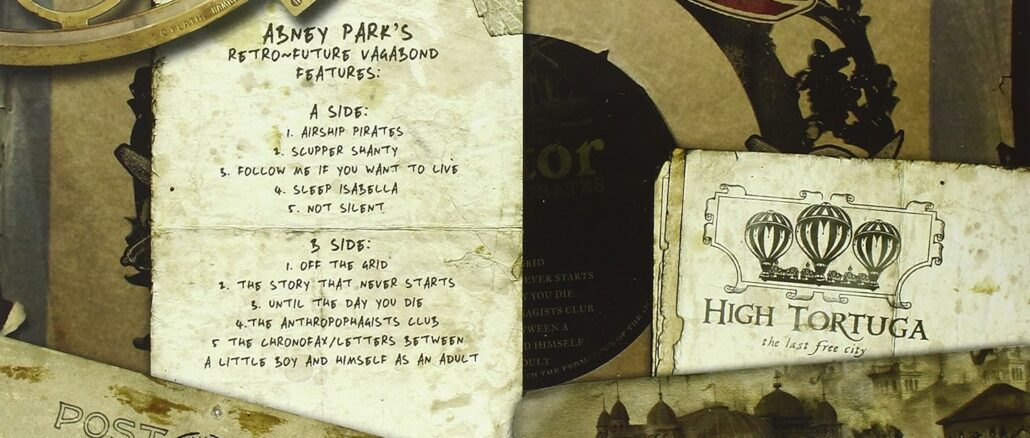 C. PLATH,
ABNEY PARK'S
RETRO~FUTURE VAGABOND
FEATURES:
A SIDE:
1. AIRSHIP PIRATES
2. SCUPPER SHANTY
3. FOLLOW ME IF YOU WANT TO LIVE
4. SLEEP ISABELLA
5. NOT SILENT
B SIDE:
1. OFF THE GRID
2. THE STORY THAT NEVER STARTS
3. UNTIL THE DAY YOU DIE
4.THE ANTHROPOPHAGISTS CLUB
5 THE CHRONOFAX/LETTERS BETWEEN
A LITTLE BOY AND HIMSELF AS AN ADULT
POST
tor
RID
EVER STARTS
Y YOU DIE
HAGISTS CLUB
TWEEN A
D HIMSELF
DULT
HIGH TORTUGA
the last free city